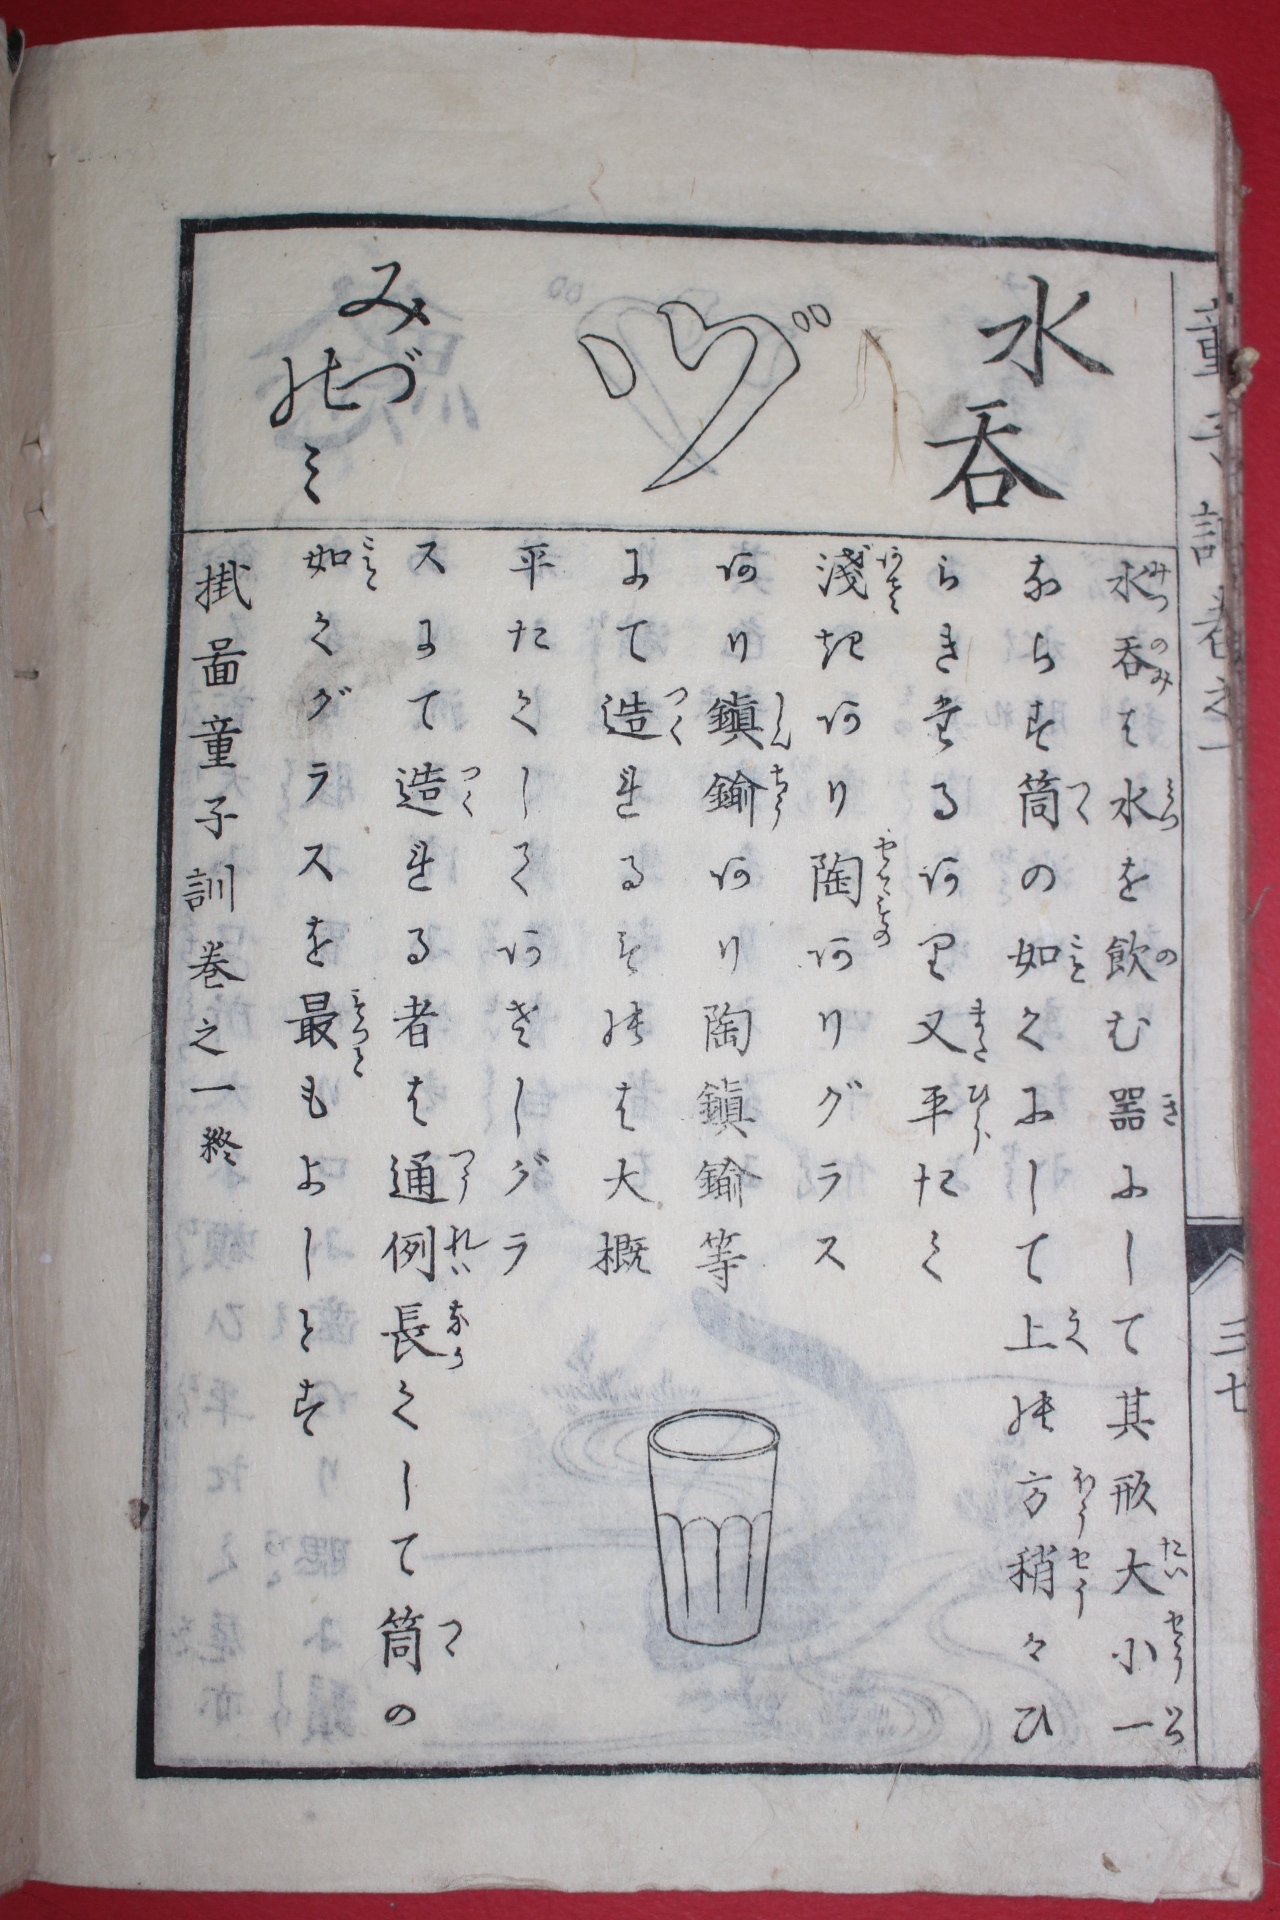 水呑
ヅ
みづのミ
水呑は水を飲む器にして其形大小一
ならず筒の如くにして上の方稍々ひ
らきたるあり又平たく
淺きあり陶ありグラス
あり鎮鍮あり陶鎮鍮等
にて造れるものは大概
平たくしてあさしグラ
スにて造れる者は通例長くして筒の
如くグラスを最もよしとす
掛啚童子訓巻之一終
三七